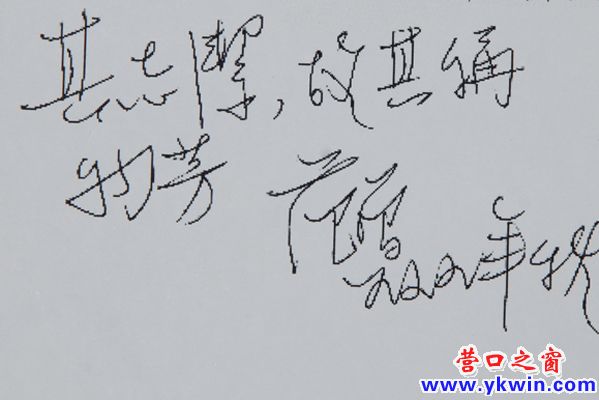 其志潔，故其稱
物芳 范曾
年秋
营口之窗
www.ykwin.com